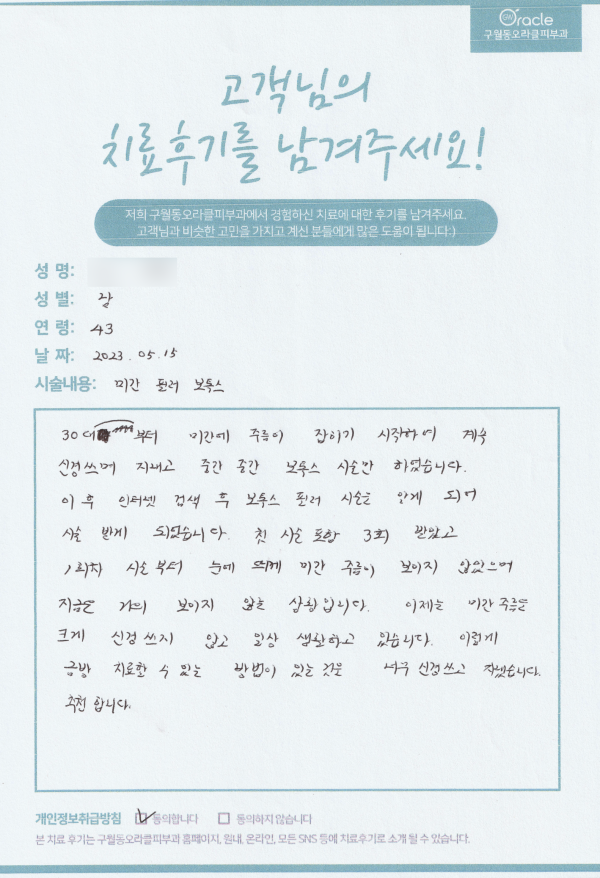 Oracle
구월동오라클피부과
고객님의
치료후기를 남겨주세요!
저희 구월동오라클피부과에서 경험하신 치료에 대한 후기를 남겨주세요.
고객님과 비슷한 고민을 가지고 계신 분들에게 많은 도움이 됩니다:)
성 명:
성 별: 남
연 령: 43
날 짜: 2023. 05. 15
시술내용: 미간 필러 보톡스
30대 부터 미간에 주름이 잡히기 시작하여 계속
신경쓰며 지내고 중간 중간 보톡스 시술만 하였습니다.
이 후 인터넷 검색 후 보톡스 필러 시술을 알게 되어
시술 받게 되었습니다. 첫 시술 포함 3회 받았고
1회차 시술 부터 눈에 띄게 미간 주름이 보이지 않았으며
지금은 거의 보이지 않는 상황입니다. 이제는 미간 주름은
크게 신경 쓰지 않고 일상 생활하고 있습니다. 이렇게
금방 치료할 수 있는 방법이 있는 것을 너무 신경쓰고 지냈습니다.
추천 합니다.
개인정보취급방침 동의합니다 동의하지 않습니다
본 치료 후기는 구월동오라클피부과 홈페이지, 원내, 온라인, 모든 SNS 등에 치료후기로 소개 될 수 있습니다.